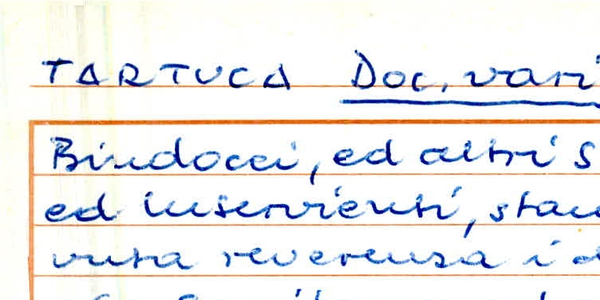 TARTUCA Doc. vari
Bindocci, ed altri S
ed inservienti, stan
vuta reverenza i d